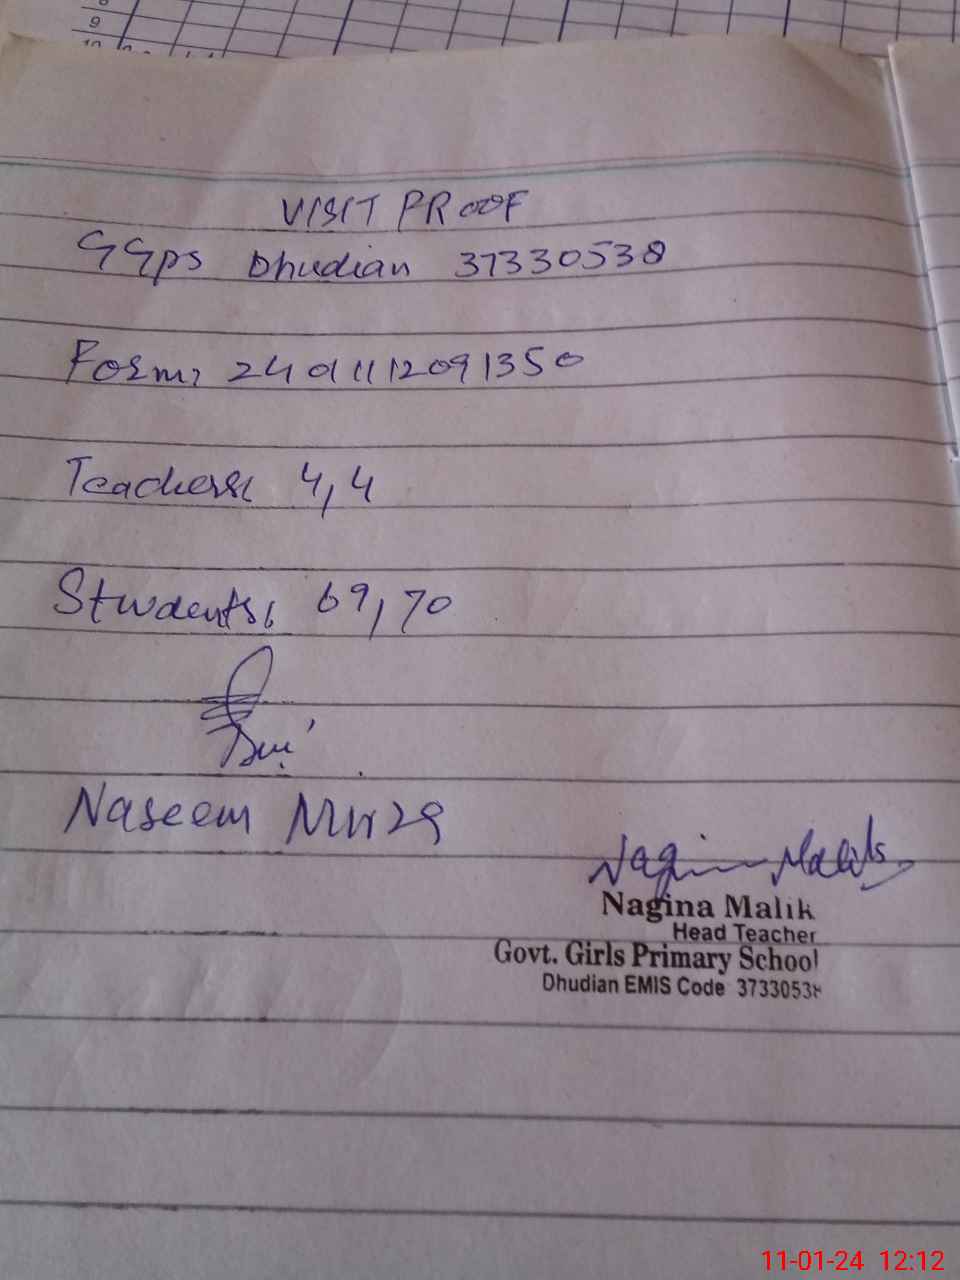 9
10
VISIT PROOF
GGps Dhudian 37330538
Form: 2401111209 1350
Teachers: 4,4
Students: 69,70
Naseem Mirza
Nagina Malik
Nagina Malik
Head Teacher
Govt. Girls Primary School
Dhudian EMIS Code 37330538
11-01-24 12:12